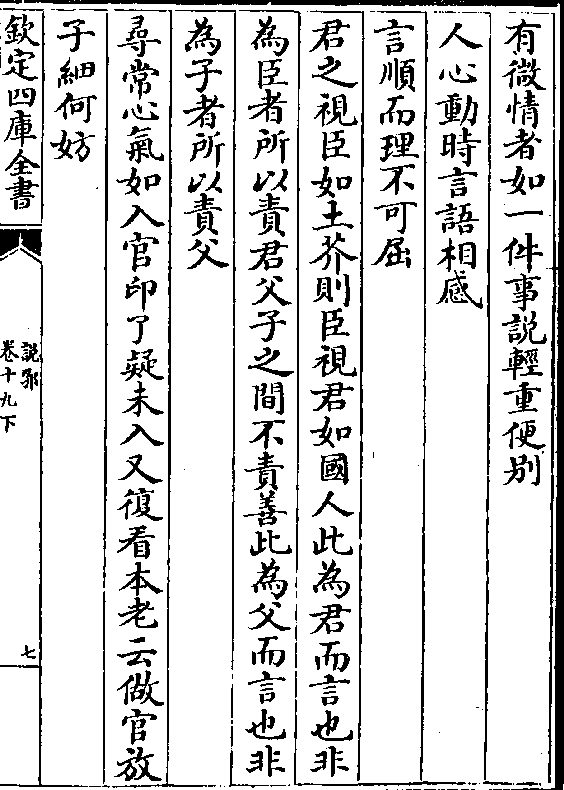 有微情者如一件事說輕重便别
人心動時言語相感
言順而理不可屈
君之視臣如土芥則臣視君如國人此為君而言也非
為臣者所以責君父子之間不責善此為父而言也非
為子者所以責父
尋常心氣如入官印了疑未入又復看本老云做官放
子細何妨
欽定四庫全書
說郛
卷十九下
七